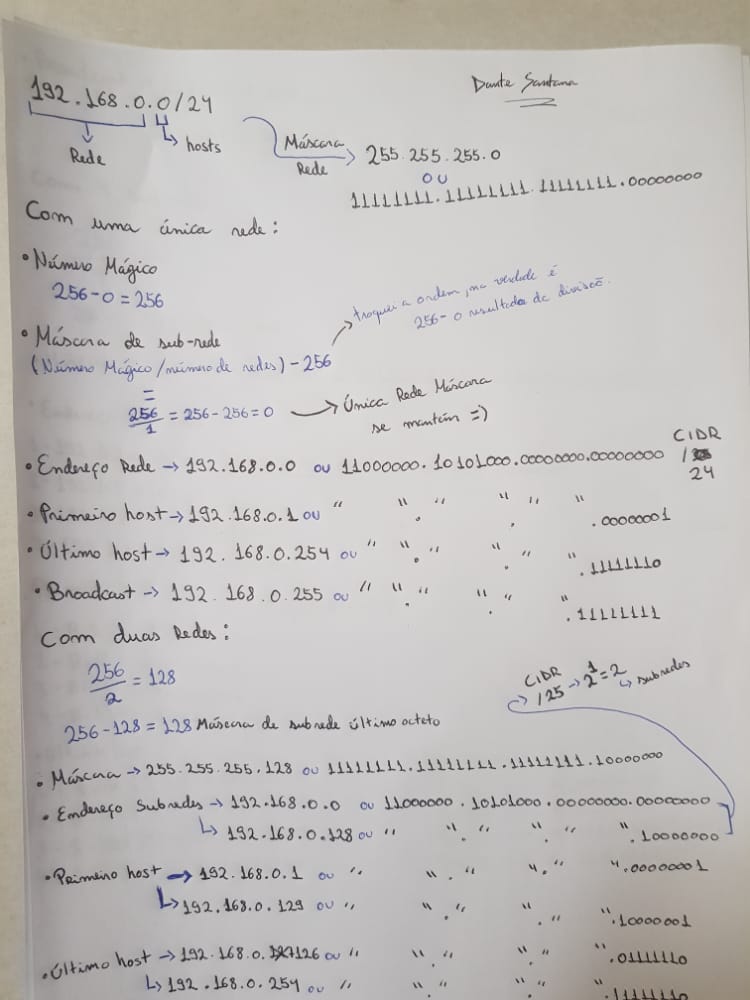 192.168.0.0/24
Dante Santana
Rede
hosts
Máscara
Rede
255.255.255.0
ou
11111111.11111111.11111111.00000000
Com uma única rede:
• Número Mágico
256-0=256
• Máscara de sub-rede
(Número Mágico/número de redes)-256
troquei a ordem, na verdade é
256-o resultado da divisão.
=
256/1 = 256-256=0
Única Rede Máscara
se mantém =)
CIDR
• Endereço Rede → 192.168.0.0 ou 11000000.10101000.00000000.00000000 /
24
• Primeiro host → 192.168.0.1 ou " " . " " . " " .00000001
• Último host → 192.168.0.254 ou " " . " " . " " .11111110
• Broadcast → 192.168.0.255 ou " " . " " . " " .11111111
Com duas Redes:
256/2 = 128
CIDR
/25 → 2¹=2
subredes
256-128=128 Máscara de subrede último octeto
• Máscara → 255.255.255.128 ou 11111111.11111111.11111111.10000000
• Endereço Subredes → 192.168.0.0 ou 11000000.10101000.00000000.00000000
192.168.0.128 ou " " . " " . " " .10000000
• Primeiro host → 192.168.0.1 ou " " . " " . " " .00000001
192.168.0.129 ou " " . " " . " " .10000001
• Último host → 192.168.0.126 ou " " . " " . " " .01111110
192.168.0.254 ou " " . " " . " " .11111110